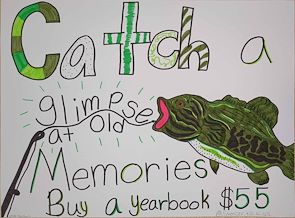 Catch a
glimpse
at old
Memories
Buy a yearbook $55